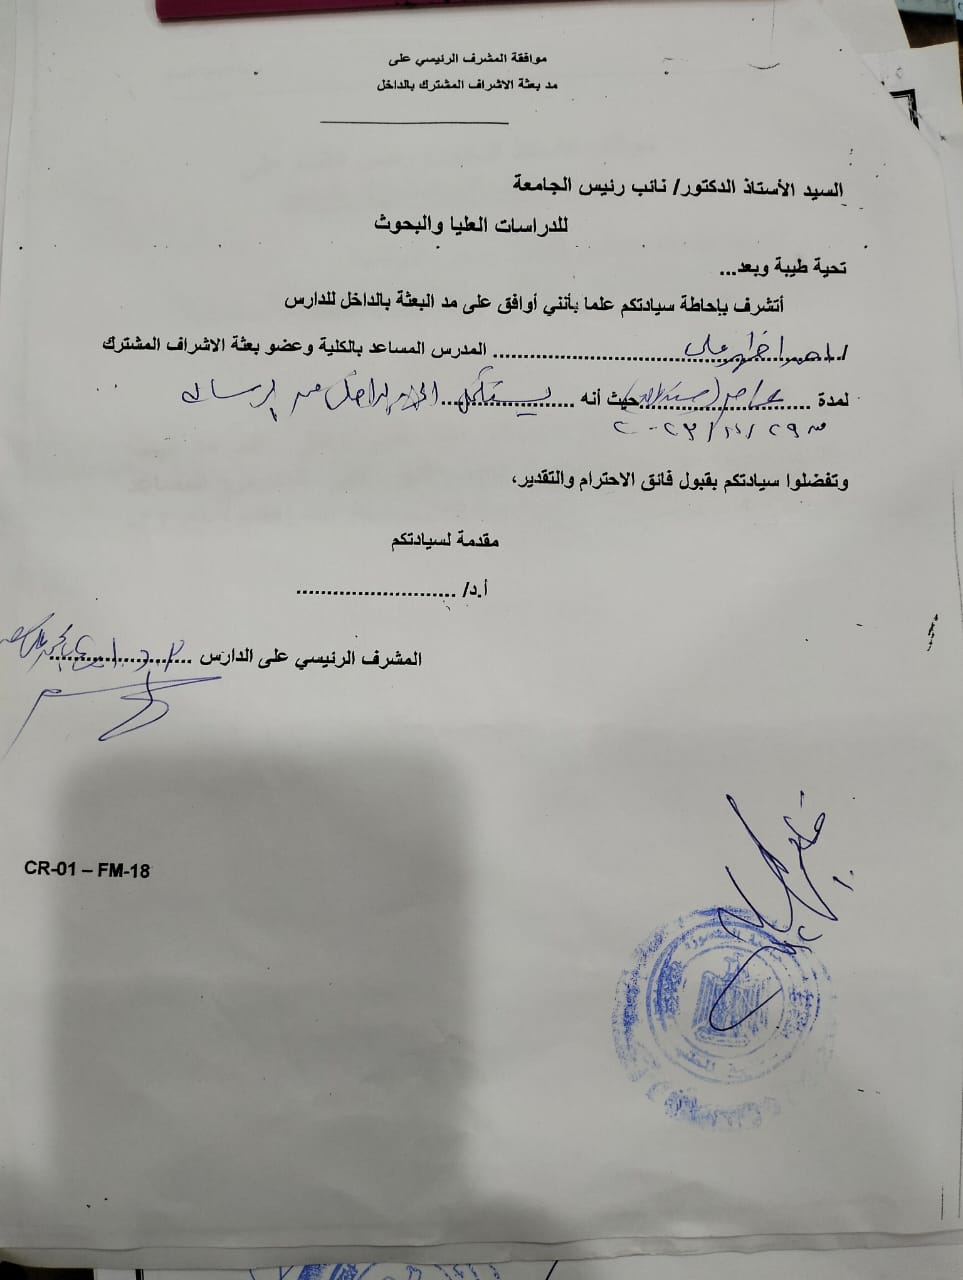 موافقة المشرف الرئيسي على
مد بعثة الاشراف المشترك بالداخل
السيد الأستاذ الدكتور/ نائب رئيس الجامعة
للدراسات العليا والبحوث
تحية طيبة وبعد...
أتشرف بإحاطة سيادتكم علما بأنني أوافق على مد البعثة بالداخل للدارس
/ احمد على المدرس المساعد بالكلية وعضو بعثة الاشراف المشترك
لمدة عام حيث أنه يستكمل
وتفضلوا سيادتكم بقبول فائق الاحترام والتقدير،
مقدمة لسيادتكم
أ.د/ ..........................
المشرف الرئيسي على الدارس
CR-01 – FM-18